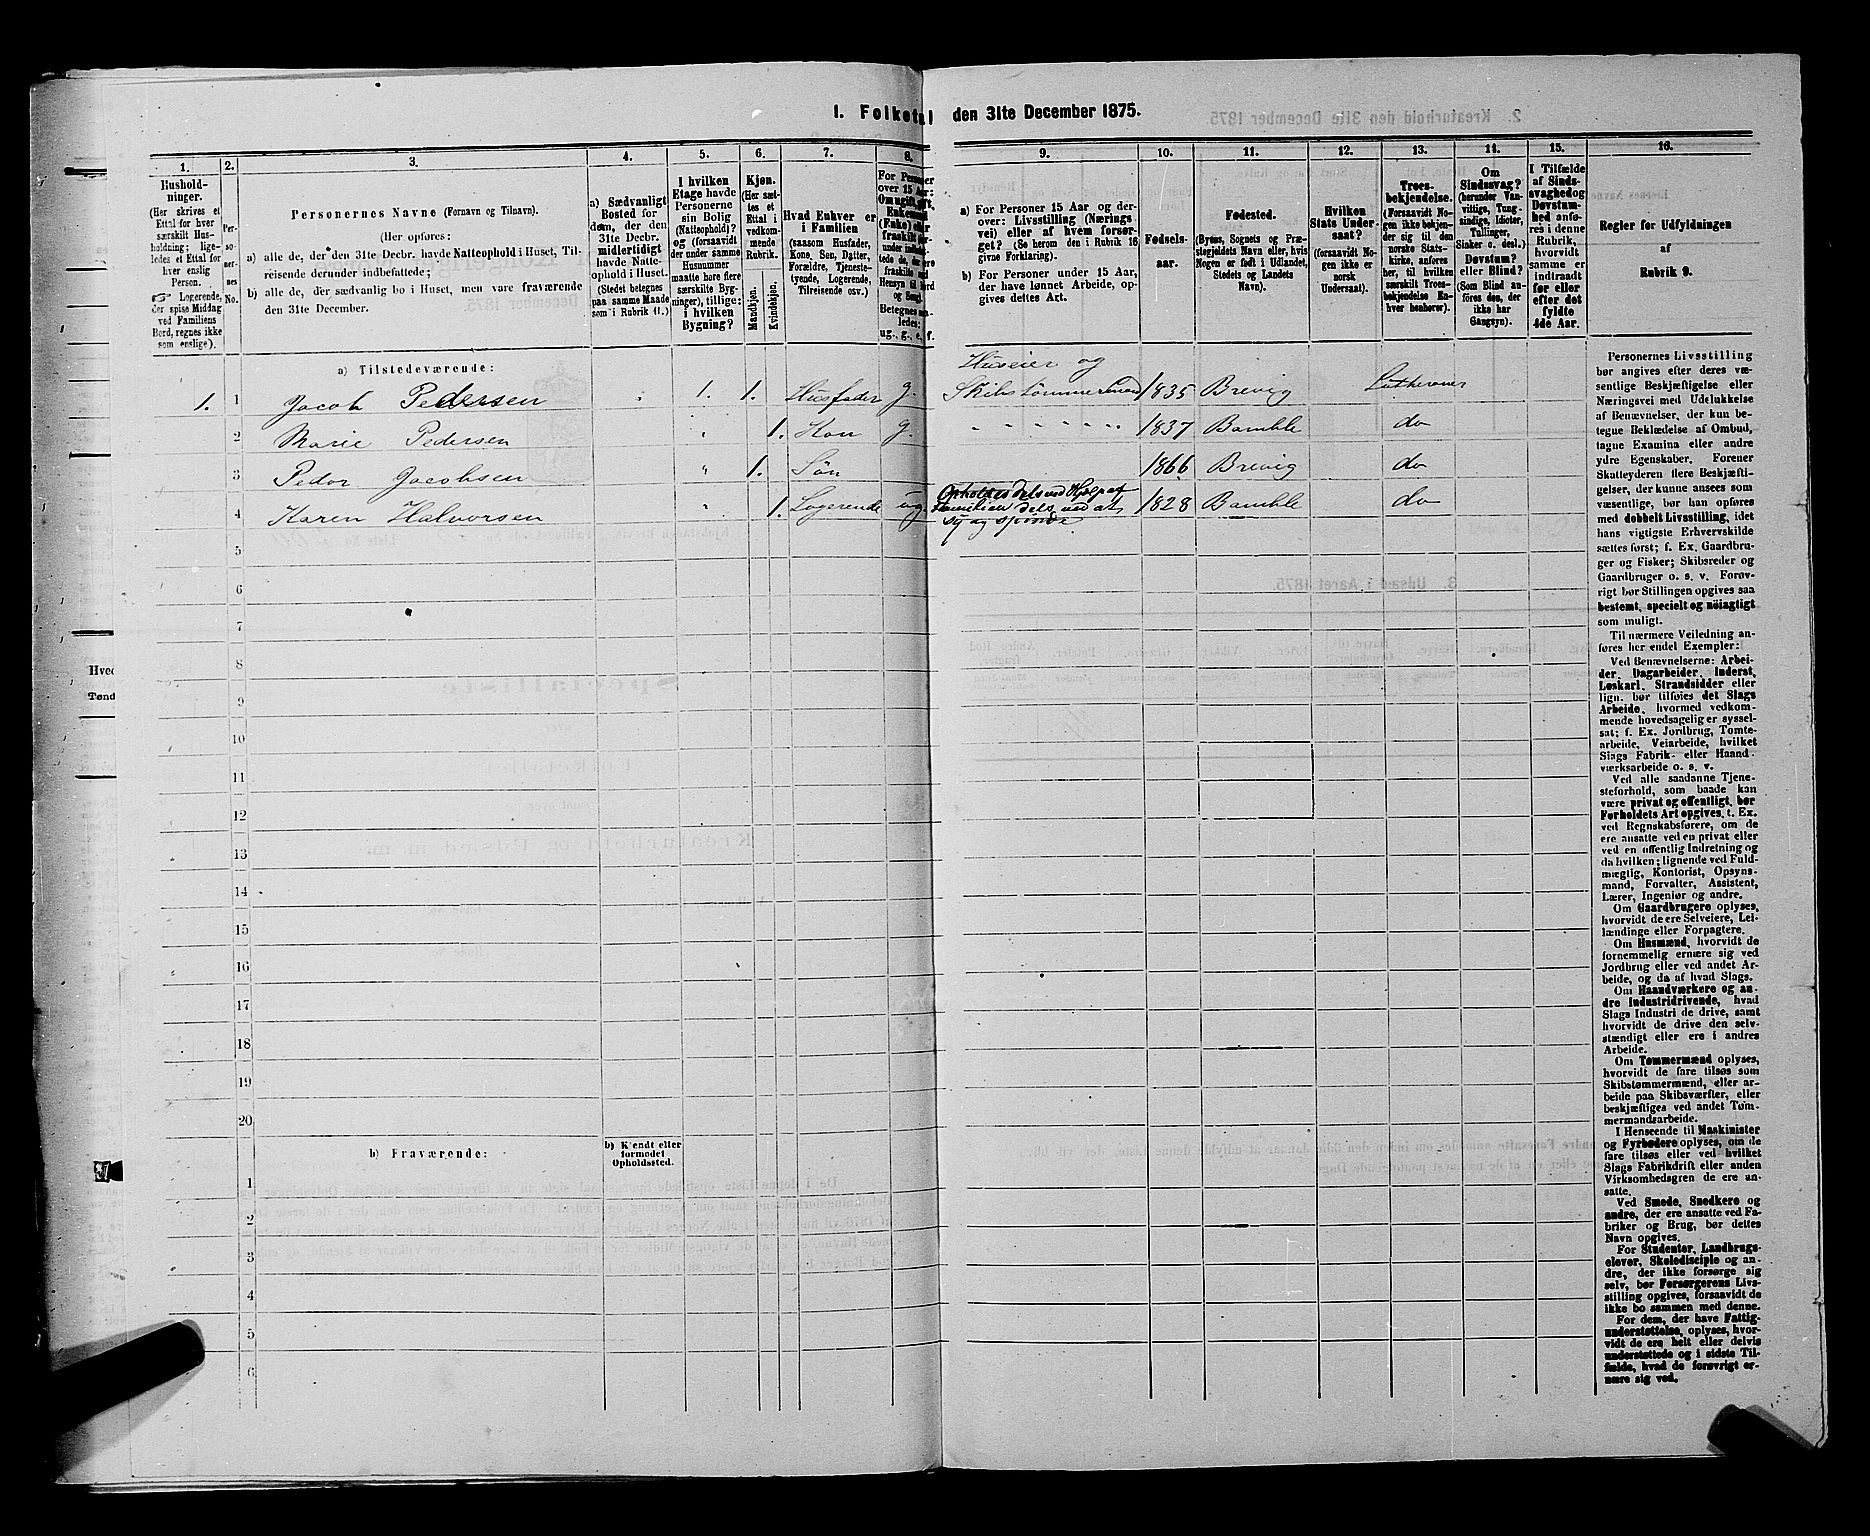 I. Folketal den 31te December 1875.
1.
Hushold-
ninger.
(Her skrives et
Ettal for hver
særskilt Hus-
holdning; lige-
ledes et Ettal for
hver enslig
Person.
☞ Logerende,
der spise Middag
ved Familiens
Bord, regnes ikke
som enslige).
2.
Per-
so-
ner-
nes
No.
3.
Personernes Navne (Fornavn og Tilnavn).
(Her opføres:
a) alle de, der den 31te Decbr. havde Natteophold i Huset, Til-
reisende derunder indbefattede;
b) alle de, der sædvanlig bo i Huset, men vare fraværende
den 31te December.
4.
a) Sædvanligt
Bosted for
dem, der den
31te Decbr.
midlertidigt
havde Natte-
ophold i Huset.
(Stedet betegnes
paa samme Maade
som i Rubrik 11.)
5.
I hvilken
Etage havde
Personerne
sin Bolig
(Natteophold)?
og (forsaavidt
der under samme
Husnummer
maatte høre flere
særskilte Byg-
ninger), tillige:
i hvilken
Bygning?
6.
Kjøn.
(Her sæt-
tes et
Ettal i
vedkom-
mende
Rubrik.
Mandkjøn.
Kvindekjøn.
7.
Hvad Enhver er
i Familien
(saasom Husfader,
Kone, Søn, Datter,
Forældre, Tjeneste-
tyende, Logerende,
Tilreisende osv.)
8.
For Personer
over 15 Aar:
Om ugift, gift,
Enkemand
(Enke) eller
fraskilt
Betegnes saa-
ledes:
ug., g., e., f.
9.
a) For Personer 15 Aar og der-
over: Livsstilling (Nærings
vei) eller af hvem forsør-
get? (Se herom den i Rubrik 16
givne Forklaring).
b) For Personer under 15 Aar,
der have lønnet Arbeide, op-
gives dettes Art.
10.
Fødsels-
aar.
11.
Fødested.
(Byens, Sognets og Præ-
stegjeldets Navn eller, hvis
Nogen er født i Udlandet,
Stedets og Landets
Navn).
12.
Hvilken
Stats Under-
saat?
(forsaavidt No-
gen ikke er
norsk
Undersaat).
13.
Troes-
bekjendelse.
(Forsaavidt No-
gen ikke bekjen-
der sig til den
norske Stats-
kirke, anføres
her, til hvilken
særskilt Troes-
bekjendelse En-
hver henhører).
14.
Om
Sindssvag?
(herunder Van-
vittige, Tung-
sindige, Idioter,
Tullinger,
Sinker o. desl.)
Døvstum?
eller Blind?
(Som Blind an-
føres des, der
ikke har
Gangsyn).
15.
I Tilfælde
af Sinds-
svaghed og
Døvstum-
hed anfø-
res i denne
Rubrik,
hvorvidt
samme er
indtraadt
før eller
efter det
fyldte
4de Aar.
16.
Regler for Udfyldningen
af
Rubrik 9.
a) Tilstedeværende:
1. 1 Jacob Pedersen 1. 1. Husfader g. Huseier og
Skibstømmermand 1835 Brevig Lutheraner
2 Marie Pedersen " 1. Kon g. " " " " " " " 1837 Bamble do
3 Peder Jacobsen " 1. Søn 1866 Brevig do
4 Karen Halvorsen " 1. Logerende ug. Opholdes dels ved Hjelp af
Familien dels ved at
sy og spinde. 1828 Bamble do
5
6
7
8
9
10
11
12
13
14
15
16
17
18
19
20
b) Fraværende:
b) Kjendt eller
formodet
Opholdssted.
1
2
3
4
5
6
Personernes Livsstilling
bør angives efter deres væ-
sentlige Beskjæftigelse eller
Næringsvei med Udelukkelse
af Benævnelser, der kun be-
tegne Beklædelse af Ombud,
tagne Examina eller andre
ydre Egenskaber. Forener
Skatteyderen flere Beskjæfti-
gelser, der kunne ansees som
væsentlige, bør han opføres
med dobbelt Livsstilling, idet
hans vigtigste Erhvervskilde
sættes først; f. Ex. Gaardbru-
ger og Fisker; Skibsreder og
Gaardbruger o. s. v. Forøv-
rigt bør Stillingen opgives saa
bestemt, specielt og nöiagtigt
som muligt.
Til nærmere Veiledning an-
føres her endel Exempler:
Ved Benævnelserne: Arbei-
der, Dagarbeider, Inderst,
Løskarl, Strandsidder eller
lign. bør tilføies det Slags
Arbeide, hvormed vedkom-
mende hovedsagelig er syssel-
sat; f. Ex. Jordbrug, Tomte-
arbeide, Veiarbeide, hvilket
Slags Fabrik- eller Haand-
værksarbeide o. s. v.
Ved alle saadanne Tjene-
steforhold, som baade kan
være privat og offentligt, bør
Forholdets Art opgives, t. Ex.
ved Regnskabsførere, om de
ere ansatte ved en privat eller
ved en offentlig Indretning og
da hvilken; lignende ved Fuld-
mægtig, Kontorist, Opsyns-
mand, Forvalter, Assistent,
Lærer, Ingeniør og andre.
Om Gaardbrugere oplyses,
hvorvidt de ere Selveiere, Lei-
lændinge eller Forpagtere.
Om Husmænd, hvorvidt de
fornemmelig ernære sig ved
Jordbrug eller ved andet Ar-
beide, og da af hvad Slags.
Om Haandværkere og an-
dre Industridrivende, hvad
Slags Industri de drive, samt
hvorvidt de drive den selv-
stændigt eller ere i andres
Arbeide.
Om Tømmermænd oplyses,
hvorvidt de fare tilsøs som
Skibstømmermænd, eller ar-
beide paa Skibsværfter, eller
beskjæftiges ved andet Tøm-
mermandsarbeide.
I Henseende til Maskinister
og Fyrbødere oplyses, om de
fare tilsøs eller ved hvilket
Slags Fabrikdrift eller anden
Virksomhedsgren de ere an-
satte.
Ved Smede, Snedkere og
andre, der ere ansatte ved Fa-
briker og Brug, bør dettes
Navn opgives.
For Studenter, Landbrugs-
elever, Skoledisciple og an-
dre, der ikke forsørge sig
selv, bør Forsørgerens Livs-
stilling opgives, forsaavidt de
ikke bo sammen med denne.
For dem, der have Fattig-
understøttelse, oplyses, hvor-
vidt de ere helt eller delvis
understøttede og i sidste Til-
fælde, hvad de forøvrigt er-
nære sig ved.